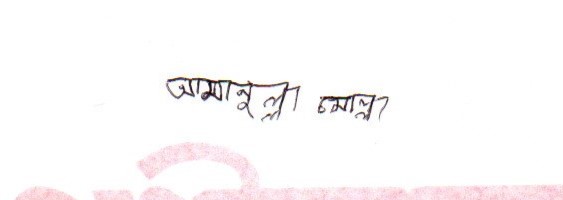 আমানুল্লা মোল্লা